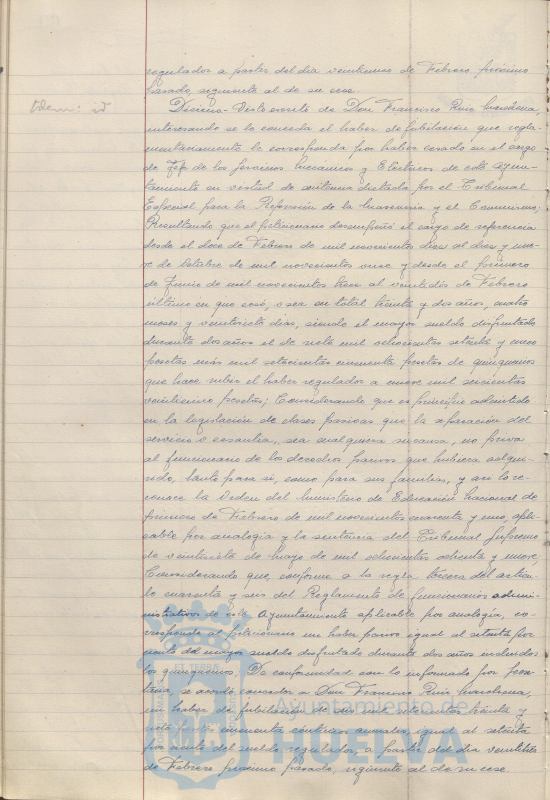 regulador a partir del dia veintiuno de Febrero próximo
pasado, siguiente al de su cese.
Idem: id
Décimo- Visto escrito de Don Francisco Ruiz Marchena,
interesando se le conceda el haber de jubilación que regla-
mentariamente le corresponda por haber cesado en el cargo
de Jefe de los servicios Mecánicos y Electricos de este Ayun-
tamiento en virtud de sentencia dictada por el Tribunal
Especial para la Represión de la Masonería y el Comunismo;
Resultando que el peticionario desempeñó el cargo de referencia
desde el doce de Febrero de mil novecientos diez al diez y nue-
ve de Octubre de mil novecientos once y desde el primero
de Junio de mil novecientos trece al veintidos de Febrero
último en que cesó, o sea en total treinta y dos años, cuatro
meses y veintisiete dias, siendo el mayor sueldo disfrutado
durante dos años el de siete mil ochocientas setenta y nueve
pesetas más mil setecientas cincuenta pesetas de quinquenios
que hace subir el haber regulador a nueve mil seiscientas
veintinueve pesetas; Considerando que es principio admitido
en la legislación de clases pasivas que la separación del
servicio o cesantía, sea cualquiera su causa, no priva
al funcionario de los derechos pasivos que hubiera adqui-
rido, tanto para sí, como para sus familias, y así lo re-
conoce la Orden del Ministerio de Educación Nacional de
primero de Febrero de mil novecientos cuarenta y uno, apli-
cable por analogía y la sentencia del Tribunal Supremo
de veintisiete de Mayo de mil ochocientos ochenta y nueve,
Considerando que, conforme a la regla tercera del artícu-
lo cuarenta y seis del Reglamento de funcionarios admini-
nistrativos de este Ayuntamiento aplicable por analogía, co-
rresponde al peticionario un haber pasivo igual al setenta por
ciento del mayor sueldo disfrutado durante dos años incluidos
los quinquenios, De conformidad con lo informado por Secre-
taría, se acordó conceder a Don Francisco Ruiz Marchena,
un haber de jubilación de seis mil setecientas treinta y
siete cincuenta céntimos anuales, igual al setenta
por ciento del sueldo regulador a partir del dia veintitrés
de Febrero próximo pasado, siguiente al de su cese.
Ayuntamiento de
HUELVA